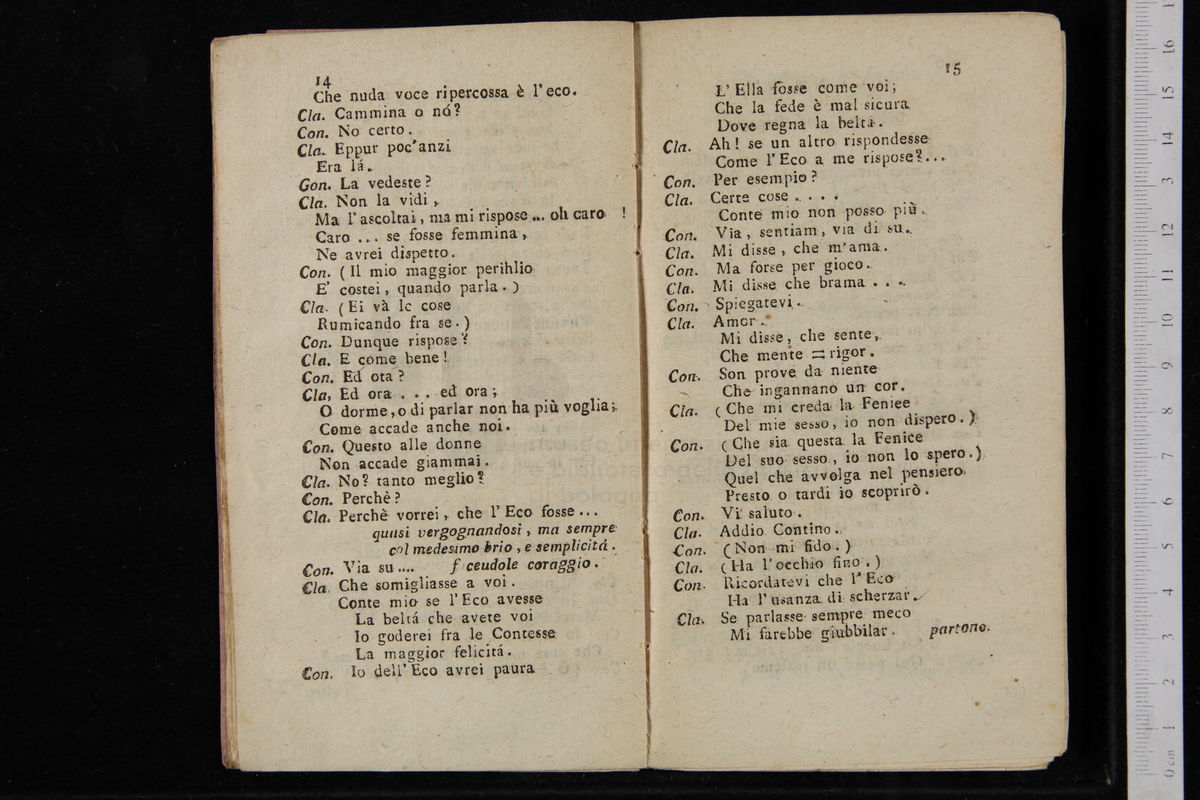 14
Che nuda voce ripercossa è l'eco.
Cla. Cammina o nó?
Con. No certo.
Cla. Eppur poc'anzi
Era lá.
Gon. La vedeste?
Cla. Non la vidi,
Ma l'ascoltai, ma mi rispose ... oh caro !
Caro ... se fosse femmina,
Ne avrei dispetto.
Con. (Il mio maggior perihlio
E' costei, quando parla.)
Cla. (Ei và le cose
Rumicando fra se.)
Con. Dunque rispose?
Cla. E come bene!
Con. Ed ota?
Cla, Ed ora . . . ed ora;
O dorme, o di parlar non ha più voglia;
Come accade anche noi.
Con. Questo alle donne
Non accade giammai.
Cla. No? tanto meglio?
Con. Perchè?
Cla. Perchè vorrei, che l'Eco fosse ...
quasi vergognandosi, ma sempre
col medesimo brio, e semplicitá.
Con. Via su .... f ceudole coraggio.
Cla. Che somigliasse a voi.
Conte mio se l'Eco avesse
La beltá che avete voi
Io goderei fra le Contesse
La maggior felicitá.
Con. Io dell'Eco avrei paura
15
L'Ella fosse come voi;
Che la fede è mal sicura
Dove regna la beltá.
Cla. Ah! se un altro rispondesse
Come l'Eco a me rispose?...
Con. Per esempio?
Cla. Certe cose . . . .
Conte mio non posso più.
Con. Via, sentiam, via di su.
Cla. Mi disse, che m'ama.
Con. Ma forse per gioco.
Cla. Mi disse che brama . . .
Con. Spiegatevi.
Cla. Amor.
Mi disse, che sente,
Che mente = rigor.
Con. Son prove da niente
Che ingannano un cor.
Cla. (Che mi creda la Feniee
Del mie sesso, io non dispero.)
Con. (Che sia questa la Fenice
Del suo sesso, io non lo spero.)
Quel che avvolga nel pensiero
Presto o tardi io scoprirò.
Con. Vi saluto.
Cla. Addio Contino.
Con. (Non mi fido.)
Cla. (Ha l'occhio fino.)
Con. Ricordatevi che l'Eco
Ha l'usanza di scherzar.
Cla. Se parlasse sempre meco
Mi farebbe giubbilar. partono.